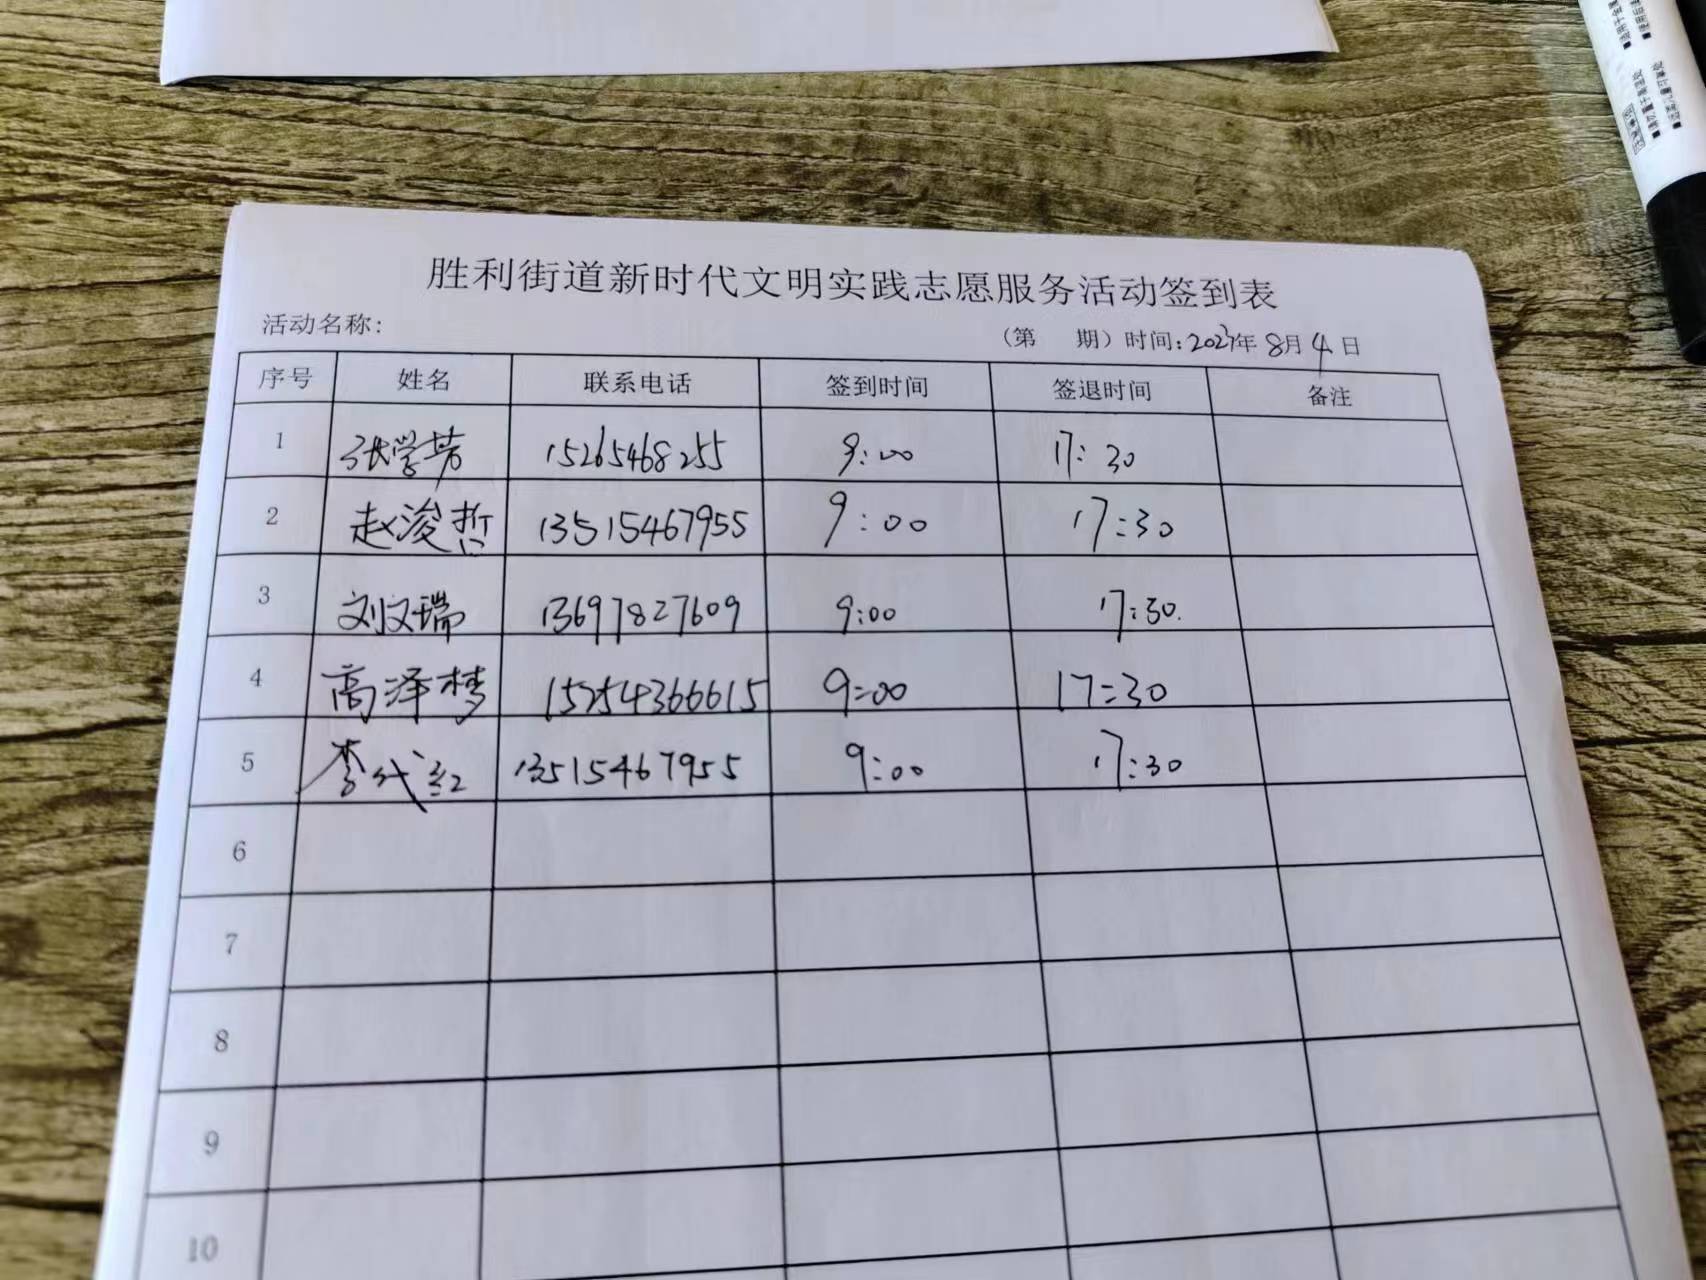 胜利街道新时代文明实践志愿服务活动签到表
活动名称: (第 期) 时间: 2023年 8月 4日
序号 姓名 联系电话 签到时间 签退时间 备注
1 张学芳 15265468255 9:00 17:30
2 赵浚哲 13515467955 9:00 17:30
3 刘文瑞 13697827609 9:00 17:30.
4 高泽梦 15254366615 9:00 17:30
5 李代红 13515467955 9:00 17:30
6
7
8
9
10